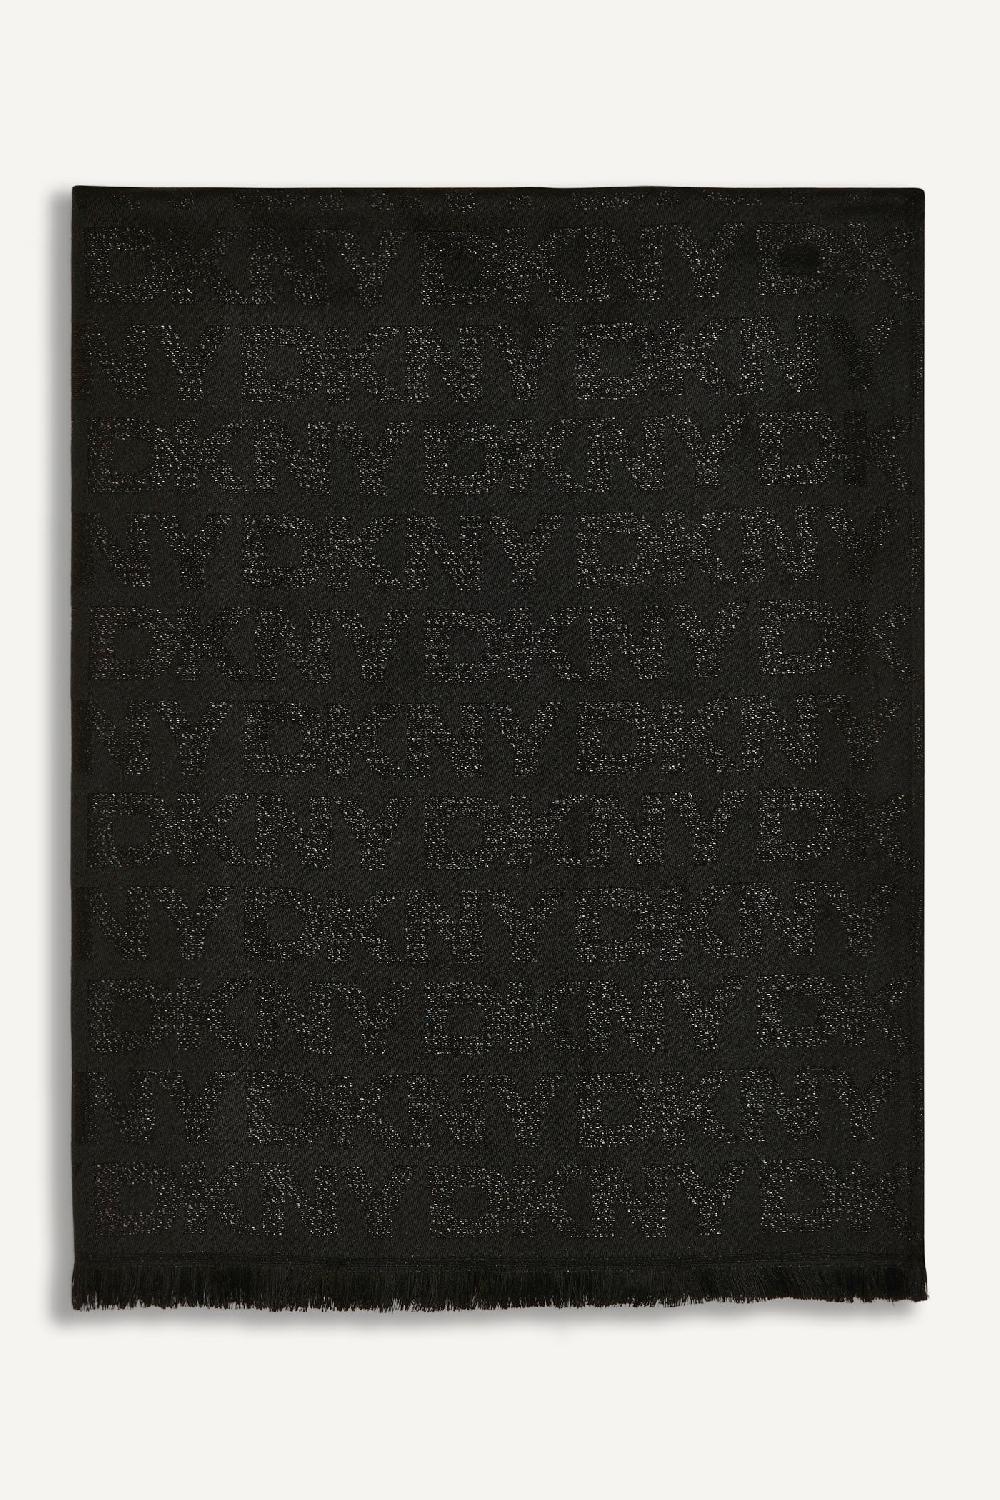 DKNYDKNYDK
NYDKNYDKNY
DKNYDKNYDK
NYDKNYDKNY
DKNYDKNYDK
NYDKNYDKNY
DKNYDKNYDK
NYDKNYDKNY
DKNYDKNYDK
NYDKNYDKNY
DKNYDKNYDK